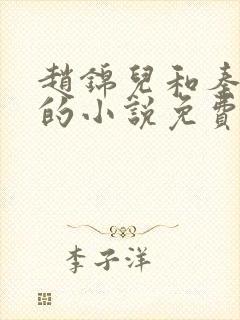 趙錦兒和秦
的小說免費
李子洋